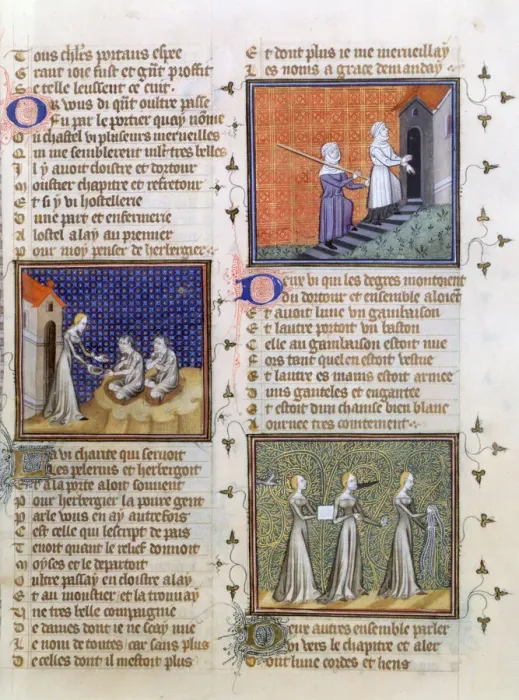 Tous ch'lrs portans espee
Grant ioie fust et gñt prouffit
Se telle leussent ce cuit.
Or vous di qñt oultre passe
Fu par le portier quay nõme
Ou chastel vi plusieurs merveilles
Qui me semblerent mlt tres belles
Il y avoit cloistre et dortour
Moustier chapitre et refretour
Et si y vi hostellerie
Dune part et enfermerie
A lostel alay au premier
Pour moy penser de herbergier.
La vi charite qui servoit
Les pelerins et herbergoit
Et a la porte aloit souvent
Pour herbergier la poure gent
Parle vous en ay autrefois
Cest celle qui lescript de pais
Tenoit quant le relief donnoit
Moyses et le departoit
Oultre passay en cloistre alay
Et au moustier et la trouvay
Une tres belle compaignie
De dames dont ie ne scay mie
Le nom de toutes car sans plus
De celles dont il mestoit plus
Et dont plus ie me merveillay
Les noms a grace demanday.
Deux vi qui les degres montoient
Du dortour et ensemble aloient
Et avoit lune un gambaison
Et lautre portoit un baston
Celle au gambaison estoit nue
Fors tant quel en estoit vestue
Et lautre es mains estoit armee
Duns ganteles et engantee
Et estoit dun chainse bien blanc
Aournee tres cointement.
Deux autres ensemble parler
Vi vers le chapitre et aler
Dont lune cordes et liens